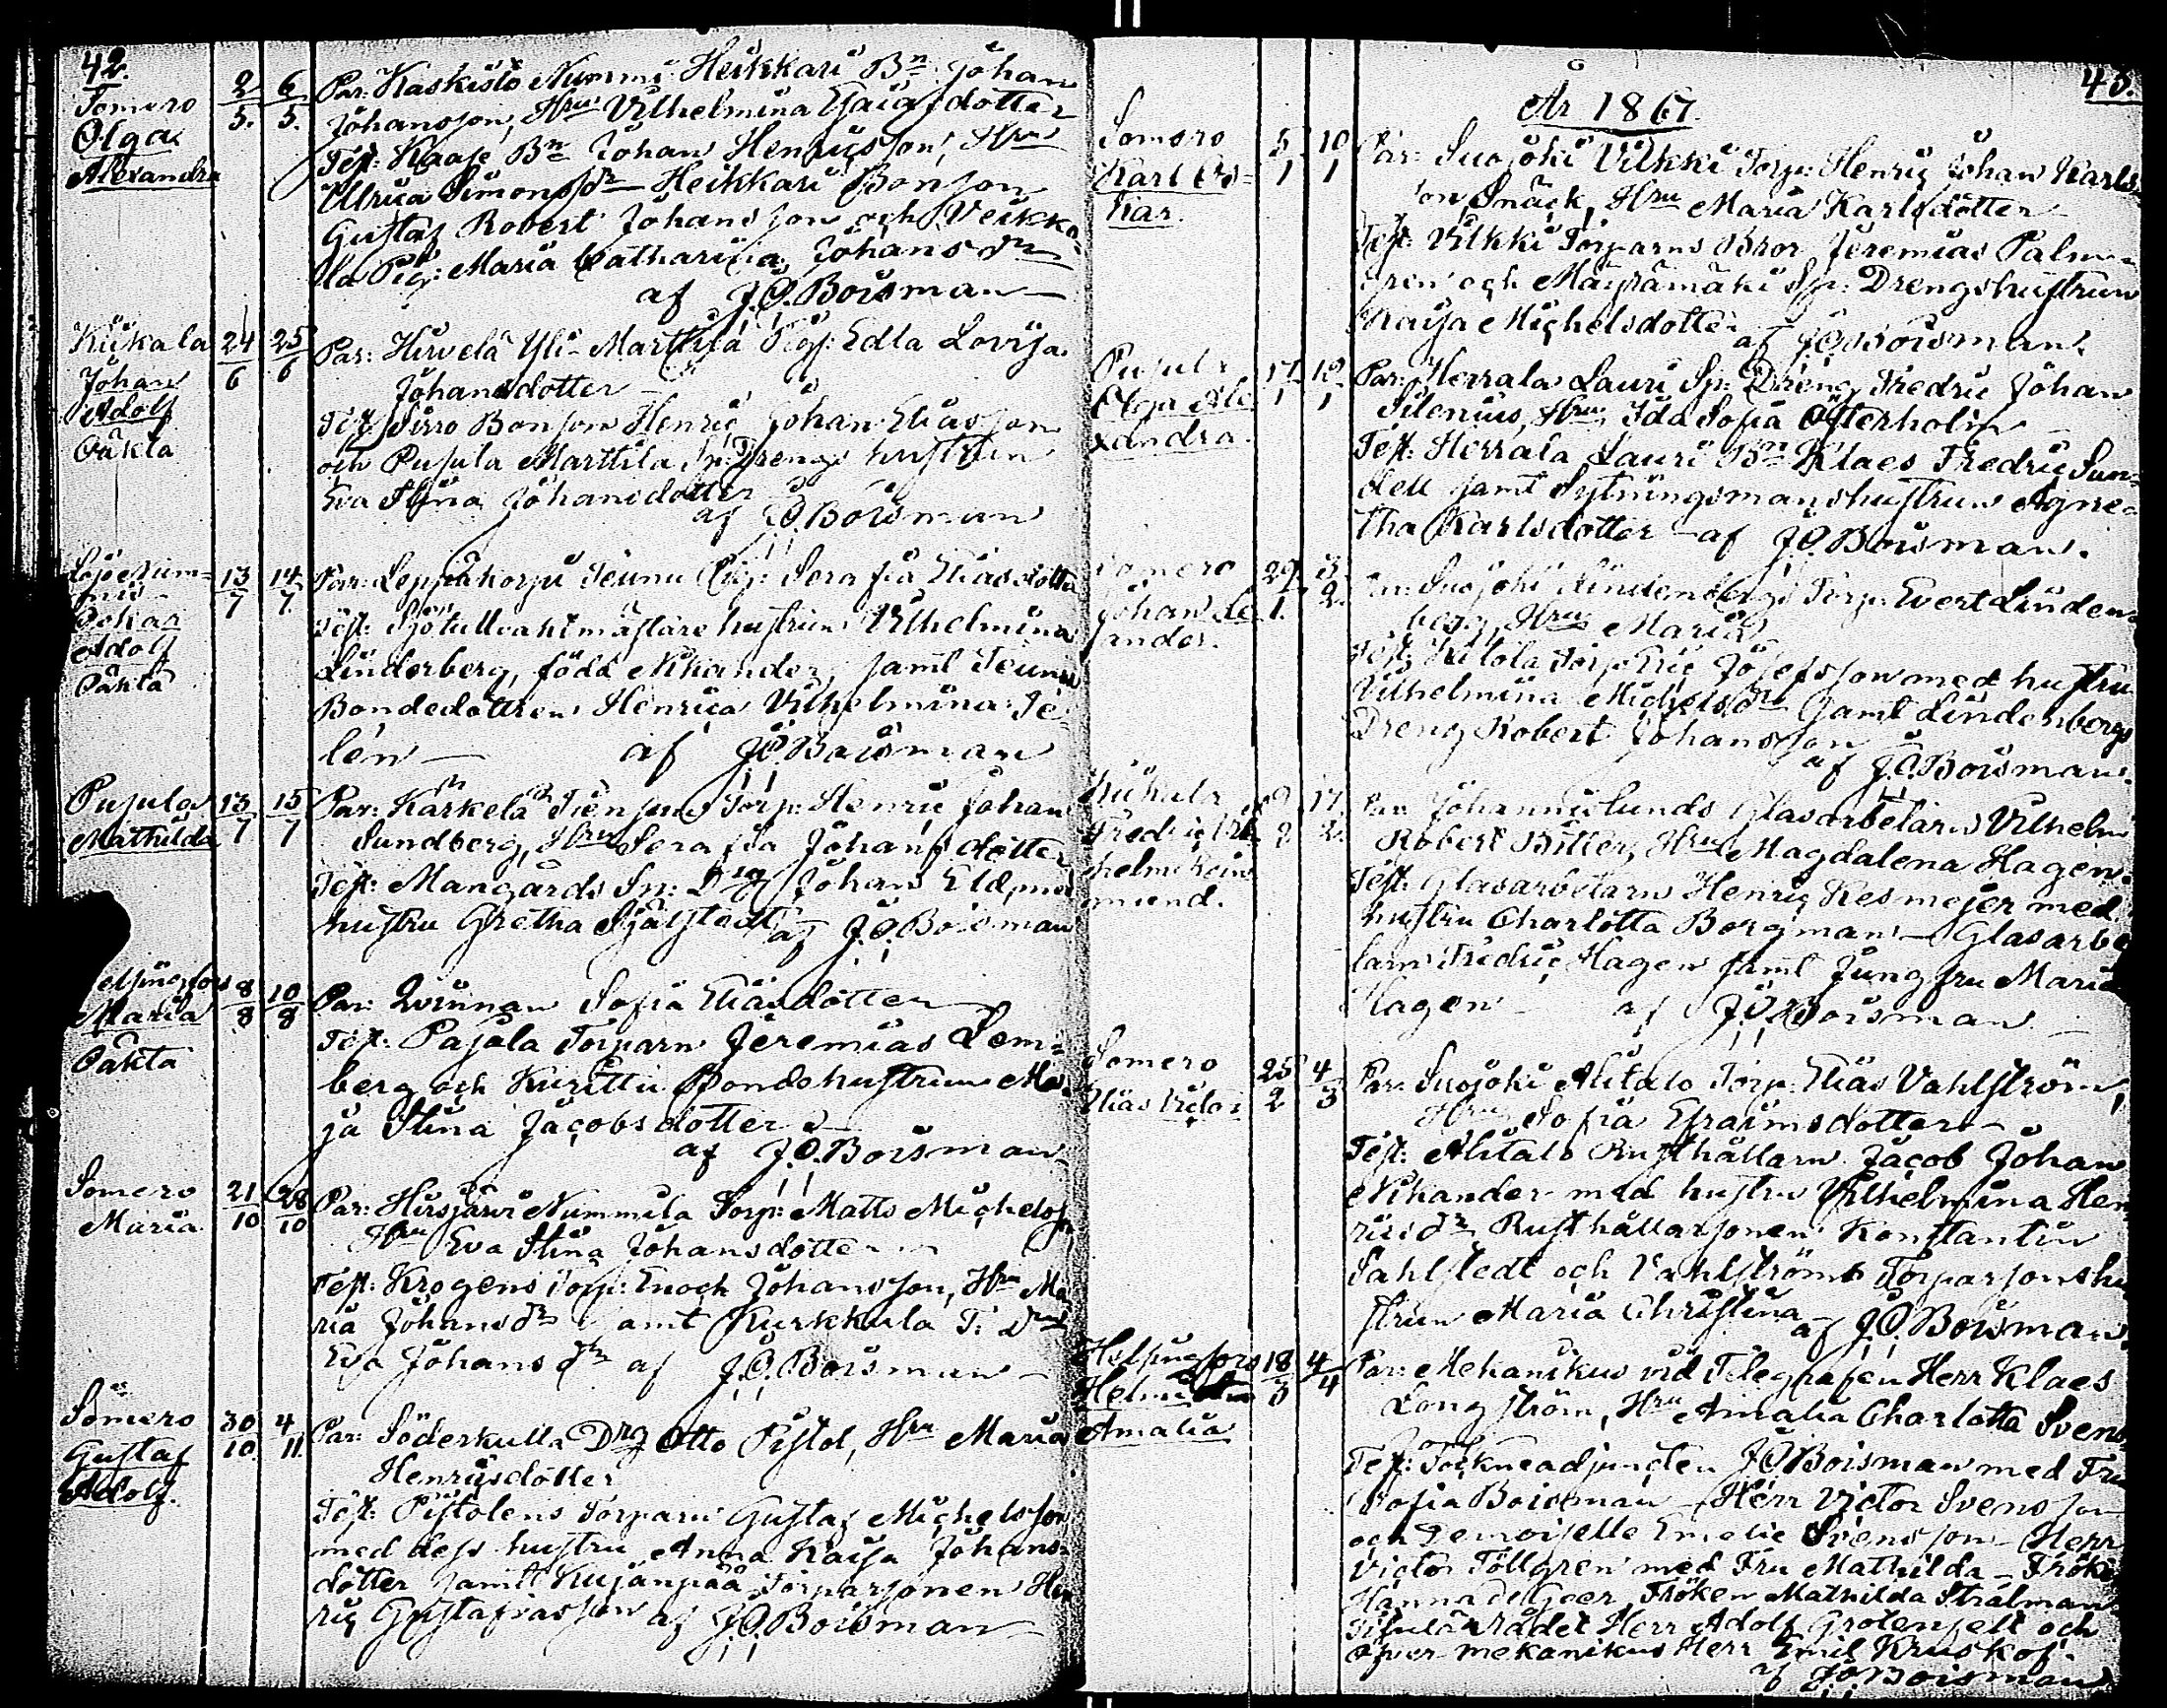 42.
Somero
Olga
Alexandra
2/5.
6/5.
Par: Kaskisto Nummi Heikkari Bn Johan
Johansson, Hru Vilhelmina Isaacsdotter
Test: Kaase Bn Johan Henricsson, Hru
Ullrica Simonsdr — Heikkari Bonson
Gustaf Robert Johansson och Veikko-
la Pig: Maria Catharina Johansdr
af J.O. Boisman —
Kiikala
Johan
Adolf
Oäkta
24/6
25/6
Par: Hirvelä Yli-Marttila Pig: Edla Lovisa
Johansdotter —
Test: Sirro Bonson Henric Johan Eliasson
och Pusula Marttila Sp: Drengs hustrun
Eva Stina Johansdotter
af J.O. Boisman
Lojo Num-
mis
Oskar
Adolf
Oäkta
13/7
14/7.
Par: Leppäkorpi Teunu Pig: Serafia Eliasdotter
Test: Sjötullvaktmästare hustrun Vilhelmina
Linderberg, född Nikander, samt Teunu
Bondedottren Henrica Vilhelmina Te-
lén — af J.O. Boisman
Pusula
Mathilda
13/7
15/7
Par: Kärkelä Torp: Henric Johan
Sundberg, Hru Serafia Johansdotter
Test: Mangårds Sp: Drg Johan Eld med
hustru Gretha Själstedt af J.O. Boisman
elsingfors
Maria
Oäkta
8/8
10/8
Par: Qvinnan Sofia Eliasdotter
Test: Pajula Torparn Jeremias Lem-
berg och Kurittu Bondshustrun Ma-
ja Stina Jacobsdotter —
af J.O. Boisman
Somero
Maria
21/10
28/10
Par: Hirsjärvi Nummila Torp: Matts Michelss
Hru Eva Stina Johansdotter —
Test: Krogens Torp: Enoch Johansson, Hru Ma
ria Johansdr samt Kurkkula T:
Eva Johansdr af J.O. Boisman —
Somero
Gustaf
Adolf.
30/10.
4/11.
Par: Söderkulla Drg Otto Pistol, Hru Maria
Henricsdotter
Test: Pistolens Torparn Gustaf Michelsson
med dess hustru Anna Kaisa Johans-
dotter samt Kujanpää Torparsonen Hen
ric Gustafsson af J.O. Boisman —
43.
År 1867.
Somero
Karl Os-
kar.
5/1
10/1
Par: Suojoki Vilkki Torp: Henric Johan Karls-
son Snäck, Hru Maria Karlsdotter —
Test: Vilkki Torparns Bror Jeremias Palm-
gren och Mäyrämäki Sp: Drengshustrun
Kaisa Michelsdotter
af J.O. Boisman.
Pusula
Olga Ale-
xandra.
17/1
18/1
Par: Herrala Lauri Sp: Dreng Fredric Johan
Silenius, Hru Ida Sofia Österholm —
Test: Herrala Lauri Bn Klaes Fredric Sun-
dell samt Sytningsmanshustrun Agne-
tha Karlsdotter — af J.O. Boisman.
Somero
Johan Le
ander.
29/1.
3/2.
Par: Suojoki Lindenbergs Torp: Evert Linden-
berg, Hru Maria
Test: Torp: Eric Josefsson med hustru
Vilhelmina Michelsdr samt Lindenbergs
Dreng Robert Johansson
af J.O. Boisman.
Kiikala
Fredric Vil-
helm Rein
mund.
9/2
17/2.
Par: Johannislunds Glasarbetarn Vilhelm
Robert Bitter, Hru Magdalena Hagen.
Test: Glasarbetarn Henric Kesmejer med
hustru Charlotta Bergman — Glasarbe
tarn Fredric Hagen samt Jungfru Maria
Hagen — af J.O. Boisman —
Somero
Elias Victor
25/2
4/3
Par: Suojoki Alitalo Torp: Elias Vahlström,
Hru Sofia Efraimsdotter —
Test: Alitalo Rusthållarn Jacob Johan
Nikander med hustru Vilhelmina Hen
ricsdr Rusthållarsonen Konstantin
Sahlstedt och Vahlströms Torparsonshu
strun Maria Christina
af J.O. Boisman.
Helsingfors
Helmi
Amalia
18/3
4/4
Par: Mekanikus vid Telegrafen Herr Klaes
Longström, Hru Amalia Charlotta Svens
Test: Sockneadjuncten J.O. Boisman med Fru
Sofia Boisman — Herr Victor Svensson
och Demoiselle Emelie Svensson — Herr
Victor Töllgren med Fru Mathilda — Frök
Hanna de Geer, Fröken Mathilda Strålman
Titulärrådet Herr Adolf Grotenfelt och
öfver mekanikus Herr Emil Kruskof.
af J.O. Boisman